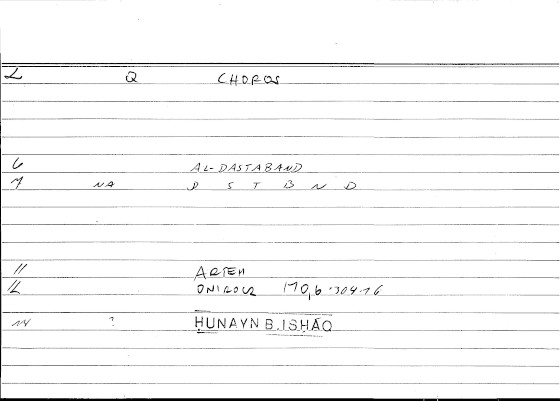 L Q CHOROS
6 AL-DASTABAND
7 NA D S T B N D
11 ARTEM
12 ONIROCR 170,6 304.16
14 ? HUNAYN B. ISHAQ